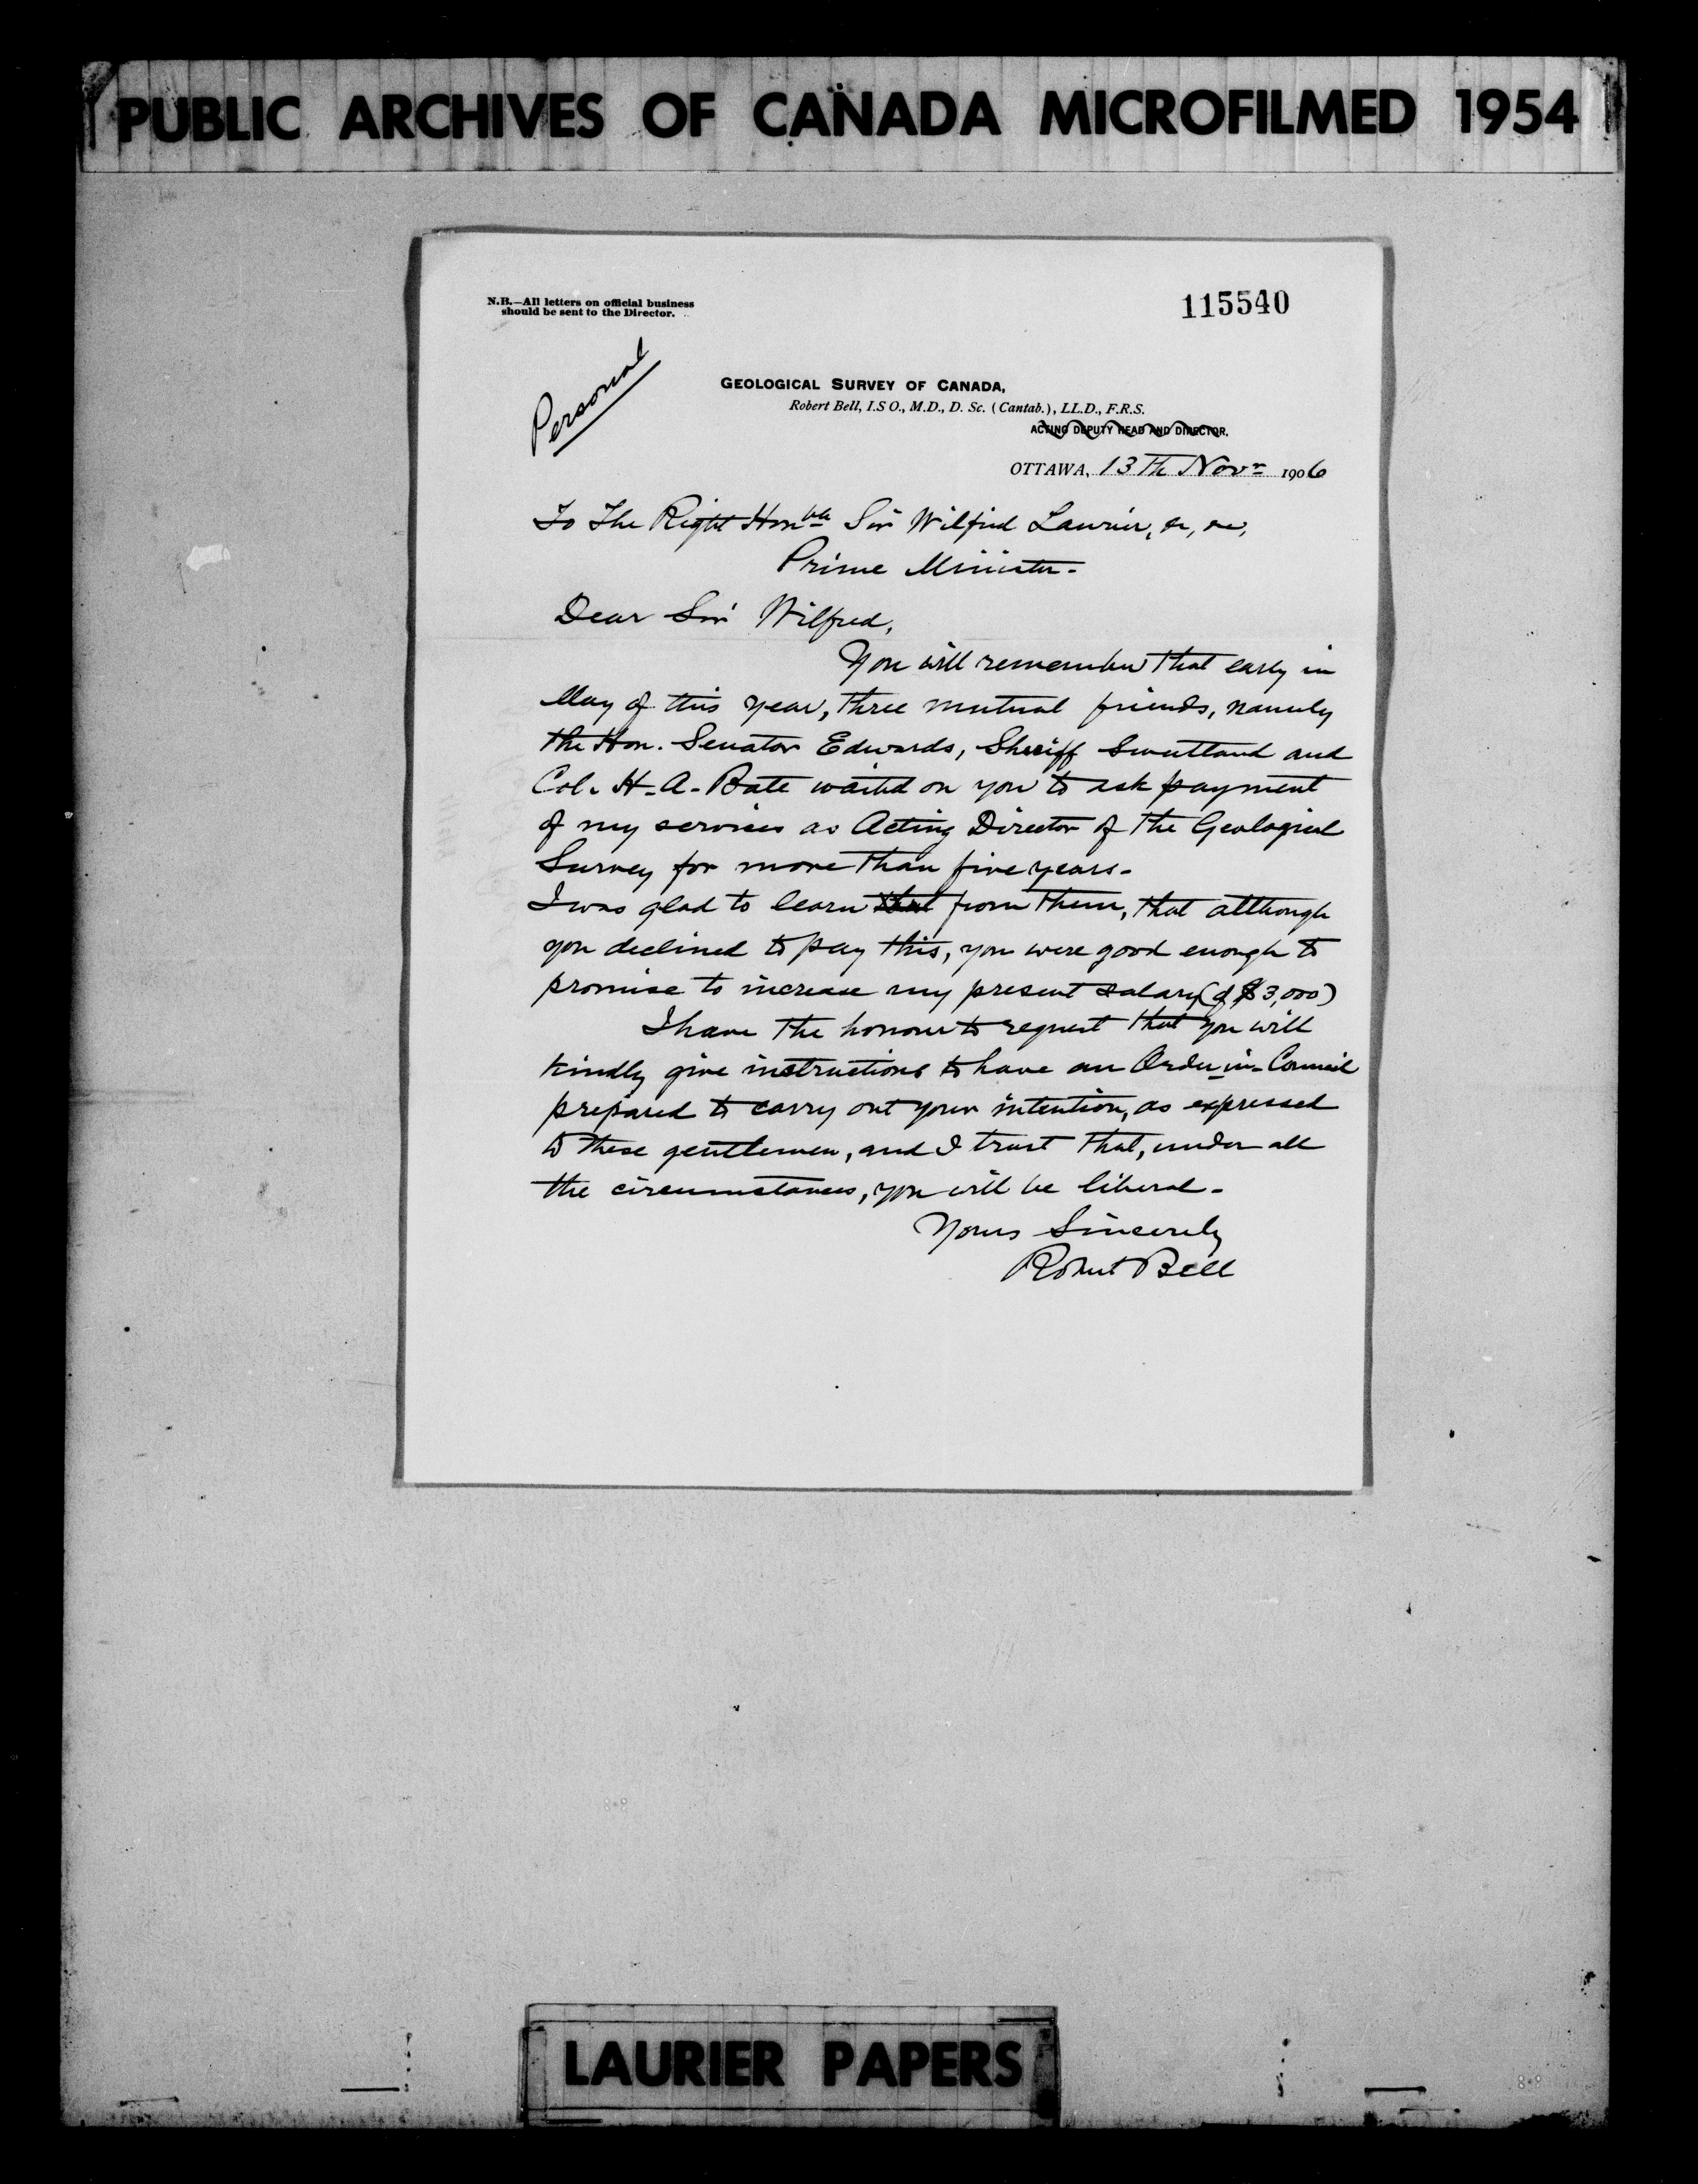 PUBLIC ARCHIVES OF CANADA MICROFILMED 1954
N.B.—All letters on official business
should be sent to the Director.
115540
Personal
GEOLOGICAL SURVEY OF CANADA,
Robert Bell, I.S O., M.D., D. Sc. (Cantab.), LL.D., F.R.S.
ACTING DEPUTY HEAD AND DIRECTOR.
OTTAWA, 13th Novr 1906
To The Right Honble Sir Wilfrid Laurier, &c, &c,
Prime Minister.
Dear Sir Wilfred,
You will remember that early in
May of this year, three mutual friends, namely
the Hon. Senator Edwards, Sheriff Sweetland and
Col. H. A. Bate waited on you to ask payment
of my services as Acting Director of the Geological
Survey for more than five years.
I was glad to learn that from them, that although
you declined to pay this, you were good enough to
promise to increase my present salary (of $3,000)
I have the honour to request that you will
kindly give instructions to have an Order-in-Council
prepared to carry out your intention, as expressed
to these gentlemen, and I trust that, under all
the circumstances, you will be liberal.
Yours Sincerely
Robert Bell
LAURIER PAPERS